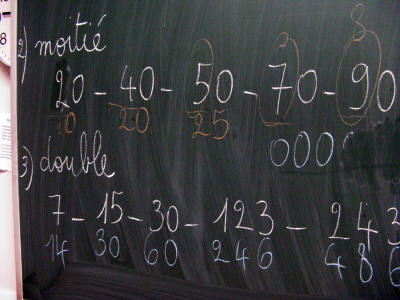 2) moitié
20 - 40 - 50 - 70 - 90
10 20 25
3) double
0000
7 - 15 - 30 - 123 - 243
14 30 60 246 486